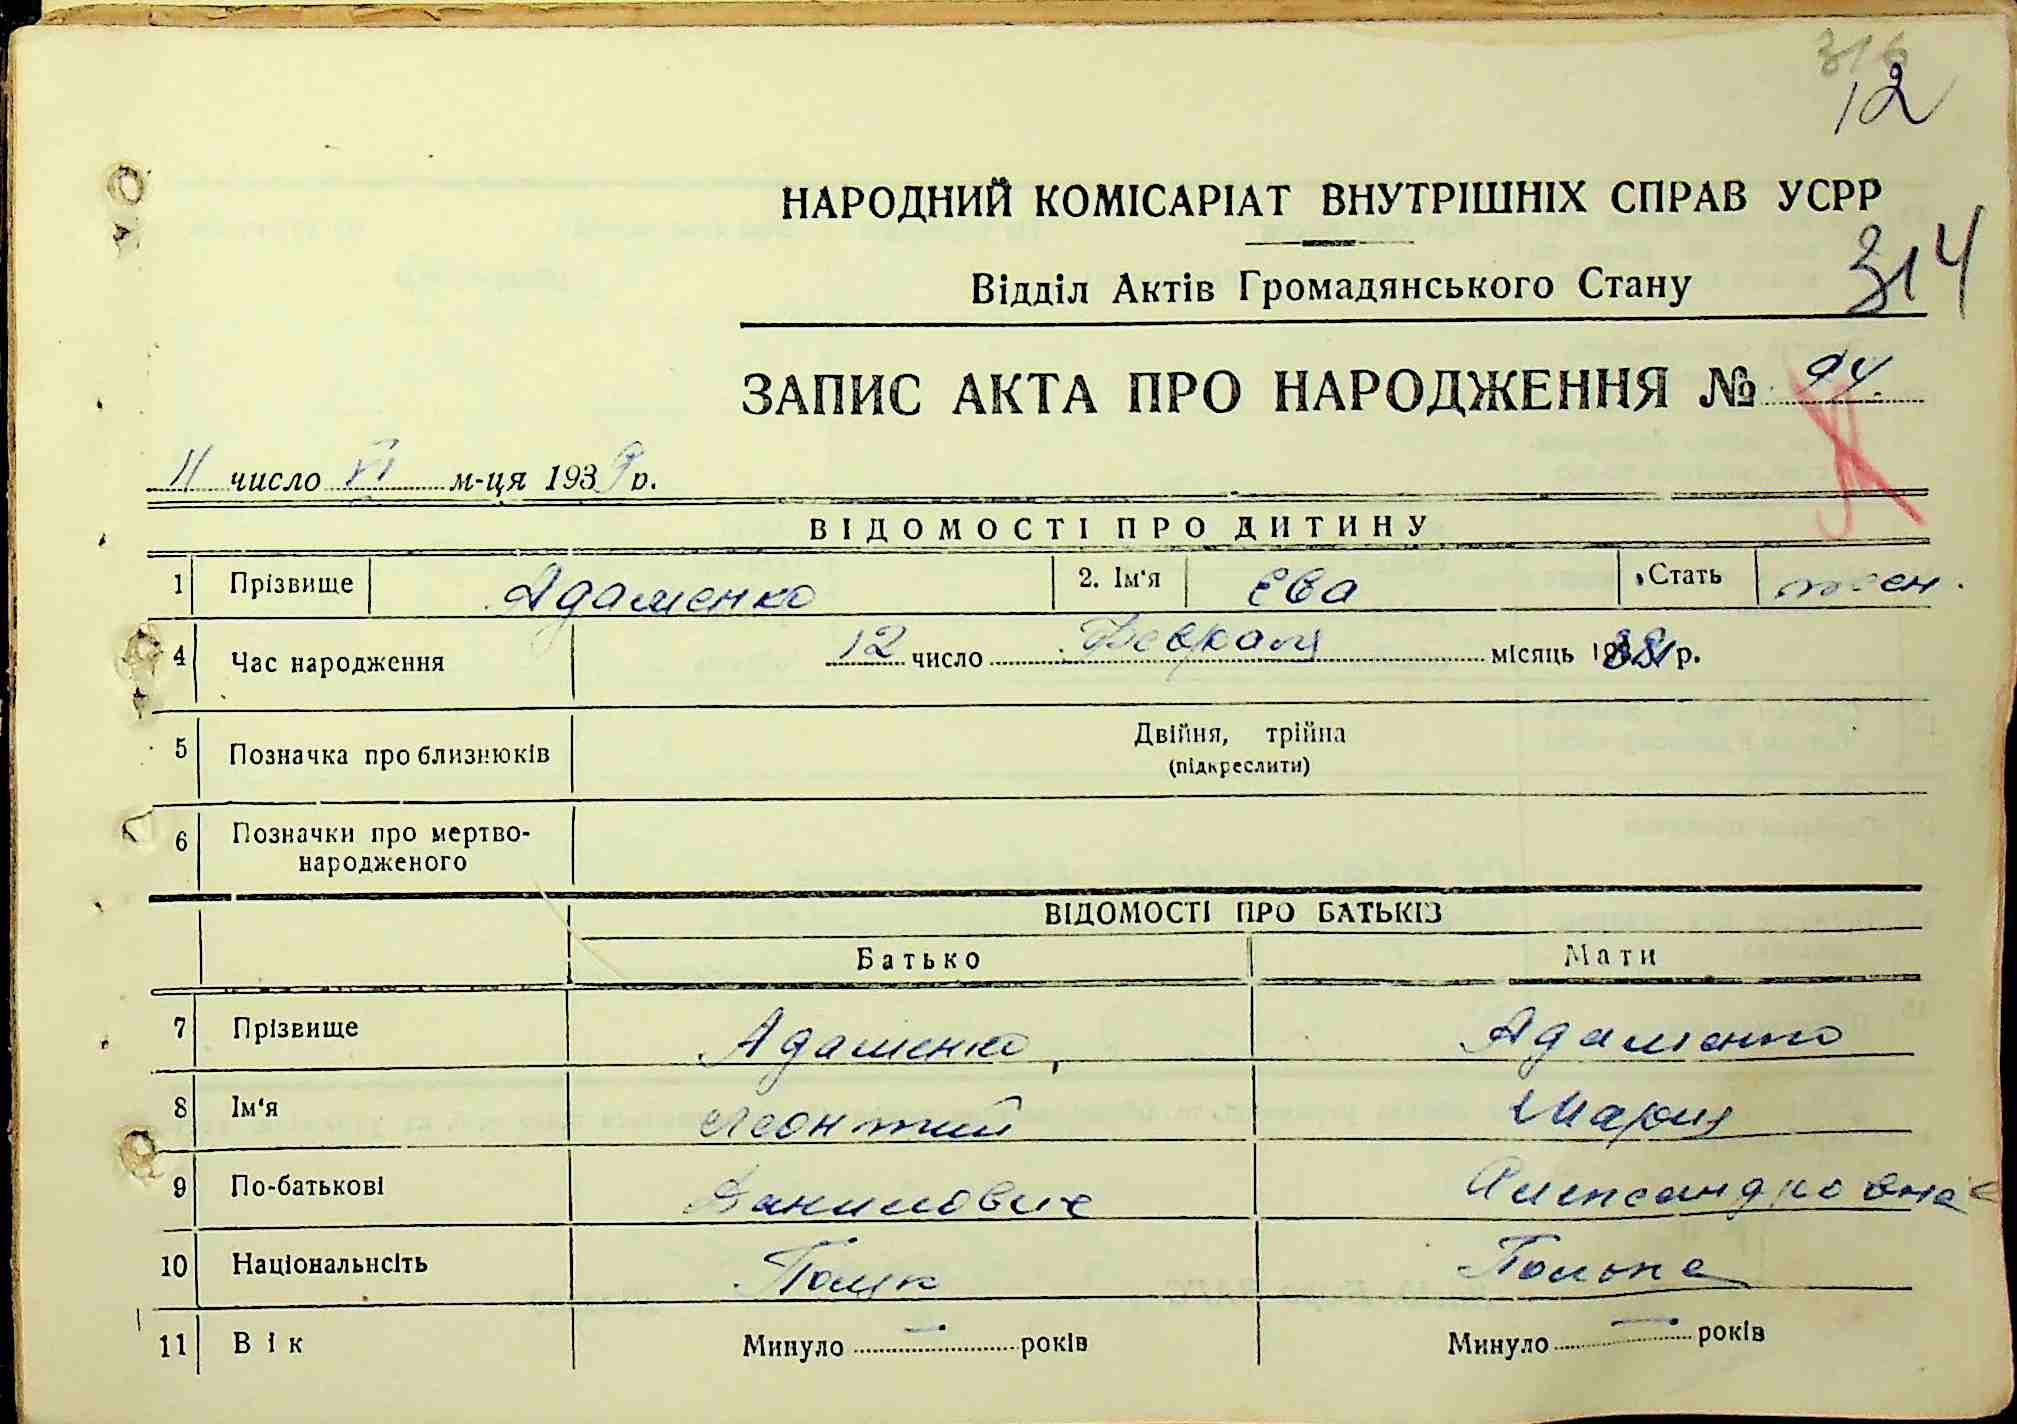 316
12
НАРОДНИЙ КОМІСАРІАТ ВНУТРІШНІХ СПРАВ УСРР
Відділ Актів Громадянського Стану
314
ЗАПИС АКТА ПРО НАРОДЖЕННЯ № 94.
11 число VI м-ця 1939 р.
ВІДОМОСТІ ПРО ДИТИНУ
1 Прізвище Адаменко 2. Ім'я Ева Стать жен.
4 Час народження 12 число Февраля місяць р.
5 Позначка про близнюків Двійня, трійна
(підкреслити)
6 Позначки про мертво-
народженого
ВІДОМОСТІ ПРО БАТЬКІВ
Батько Мати
7 Прізвище Адаменко Адаменко
8 Ім'я Леонтий Мария
9 По-батькові Данилович Александровна
10 Національнсіть Поляк Полька
11 Вік Минуло — років Минуло — років